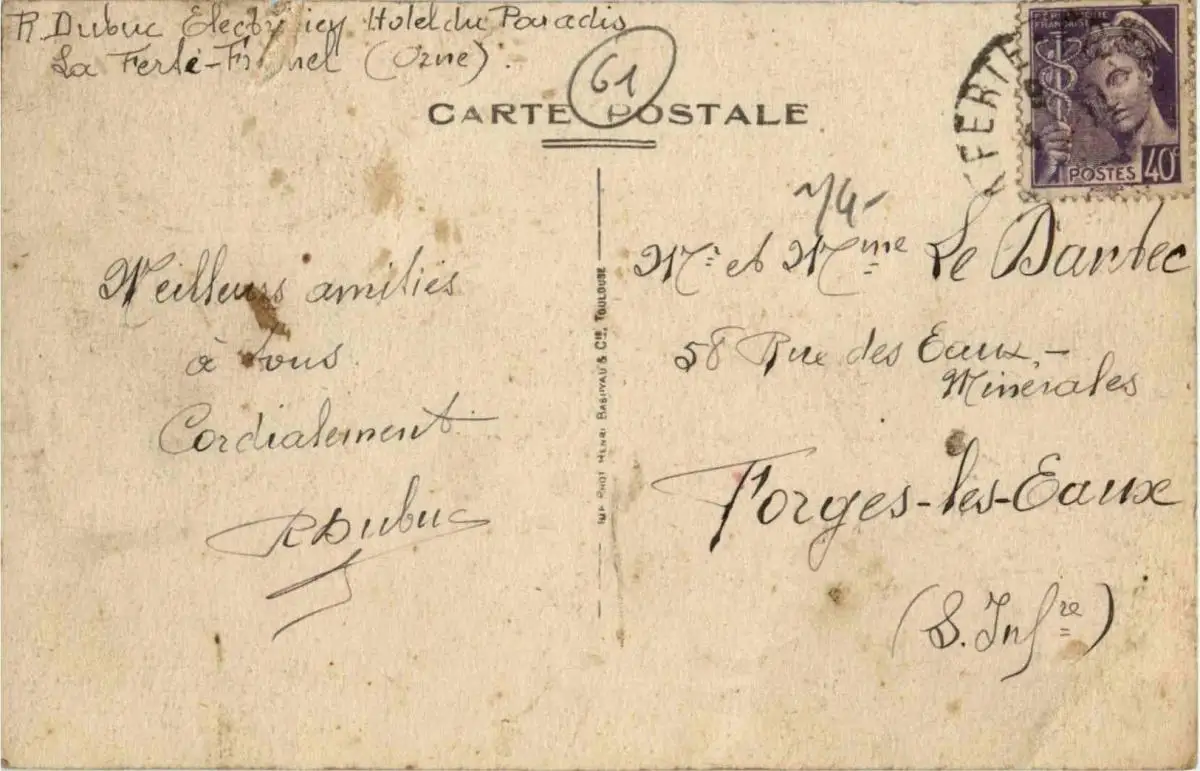 R. Dubuc Electricien Hotel du Paradis
La Ferté-Fresnel (Orne).
61
CARTE POSTALE
LA FERTE
REPUBLIQUE
FRANÇAISE
POSTES 40c
Meilleurs amitiés
à tous
Cordialement
RDubuc
PHOT HENRI BASUYAU & Cie, TOULOUSE
74-
Mr et Mme Le Dantec
58 Rue des Eaux-
Minérales
Forges-les-Eaux
(S. Infre)